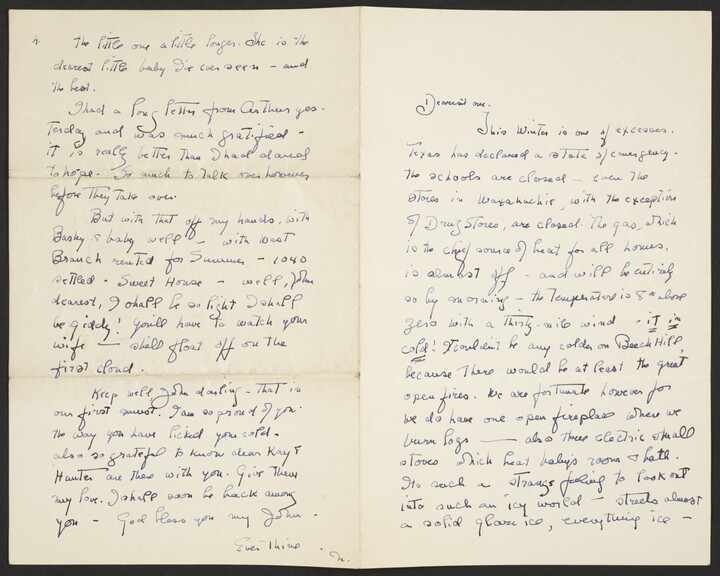 4.
the little one a little longer. She is the
dearest little baby I've ever seen – and
the best.
I had a long letter from Arthur yes-
terday and was much gratified –
it is really better than I had dared
to hope – So much to talk over however
before they take over.
But with that off my hands, with
Basky & baby well – with West
Branch rented for Summer – 1040
settled – Sweet House – well, John
dearest, I shall be so light I shall
be giddy! You'll have to watch your
wife — shall float off on the
first cloud.
Keep well John darling – that is
our first must. I am so proud of you
the way you have licked your cold –
also so grateful to know dear Kay &
Hunter are there with you. Give them
my love. I shall soon be back among
you – God bless you my John –
Ever Thine –
N.
Dearest one.
This Winter is one of excesses.
Texas has declared a state of emergency –
the schools are closed – even the
stores in Waxahachie, with the exception
of Drug Stores, are closed. The gas, which
is the chief source of heat for all homes,
is almost off – and will be entirely
so by morning – the temperature is 8° above
zero with a thirty-mile wind – it is
cold! It couldn't be any colder on Beech Hill
because there would be at least the great
open fires. We are fortunate however for
we do have one open fireplace where we
burn logs — also three electric small
stoves which heat baby's room & bath.
Its such a strange feeling to look out
into such an icy world – streets almost
a solid glaze ice, everything ice –